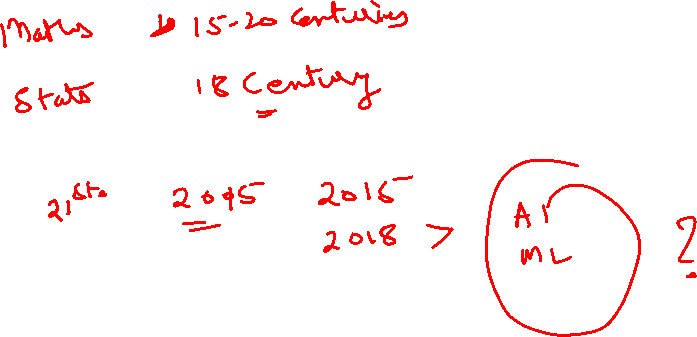 Maths 15-20 Centuries
Stats 18 Century
21st 2015 2018 > AI ML ?